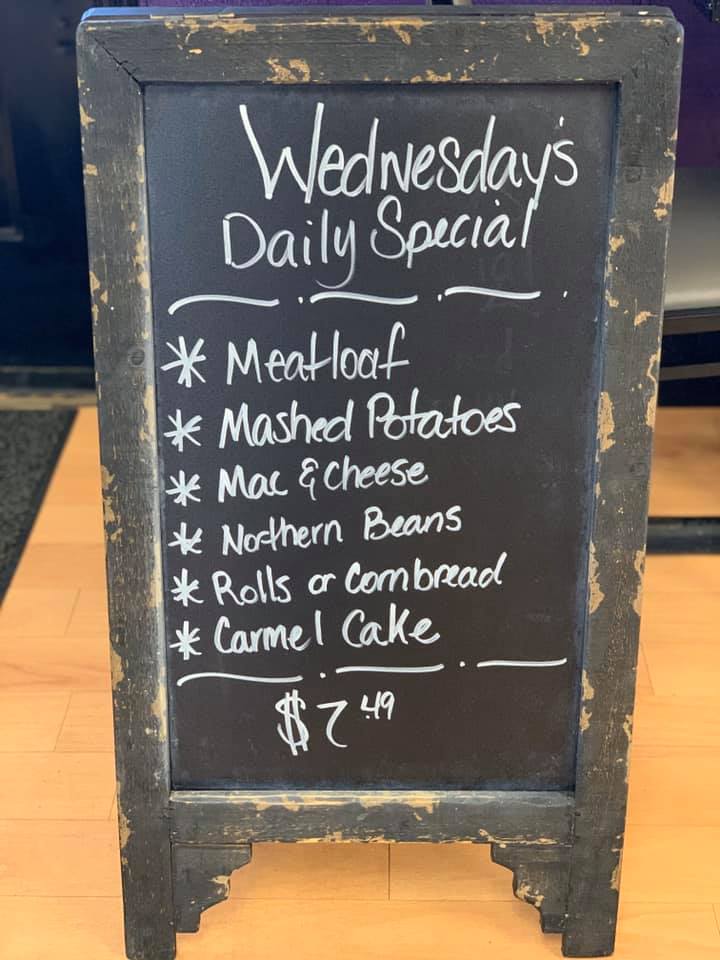 Wednesday's
Daily Special
* Meatloaf
* Mashed Potatoes
* Mac & Cheese
* Northern Beans
* Rolls or Cornbread
* Carmel Cake
$7.49